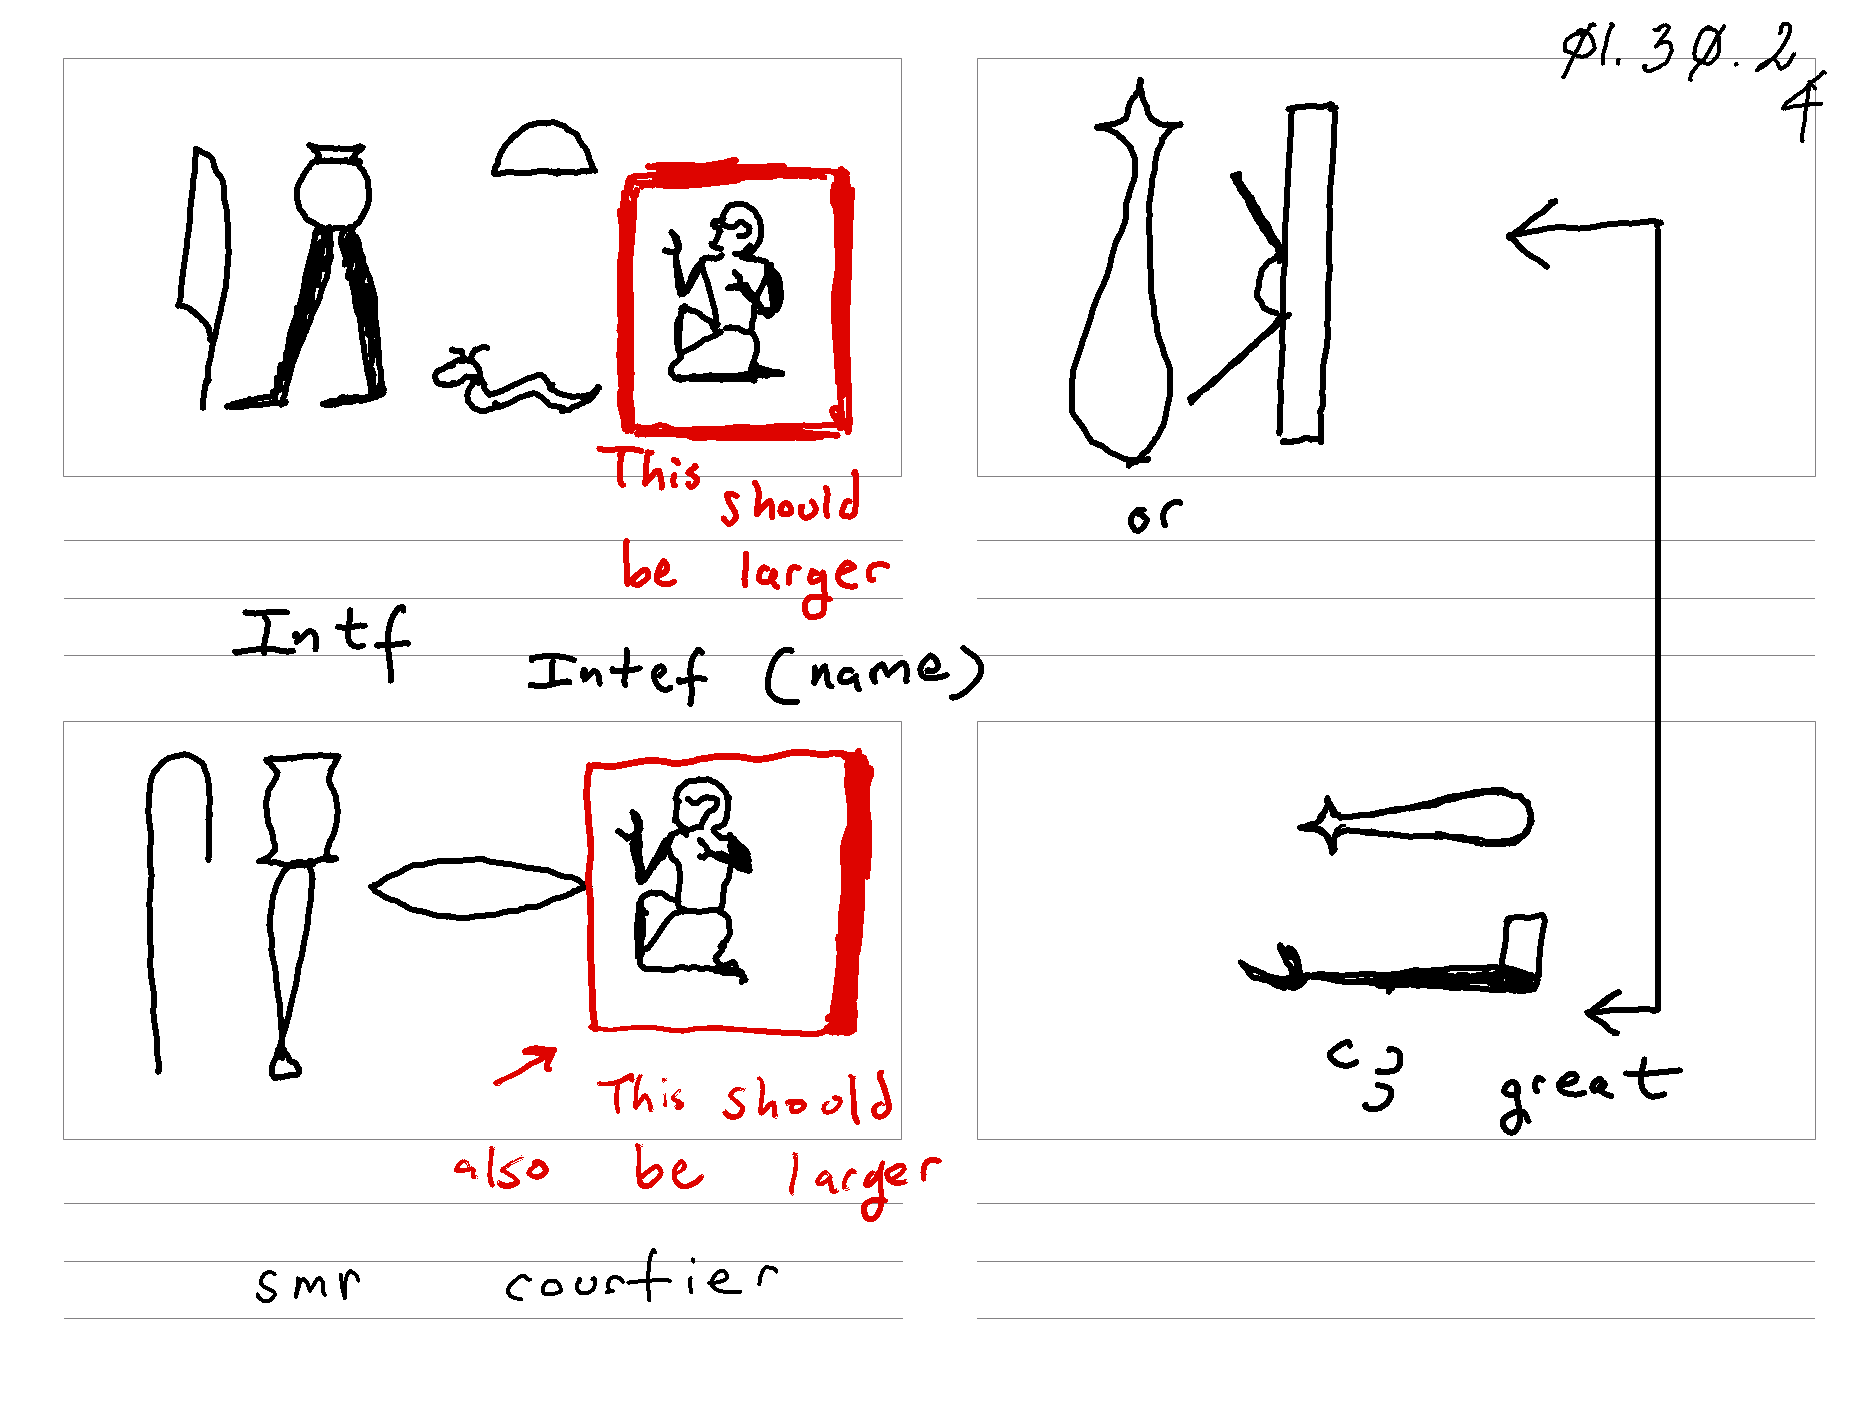 Ø1.3Ø.24
This
should
be larger
or
Intf
Intef (name)
ꜥꜣ great
This should
also be larger
smr courtier